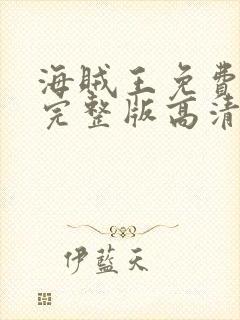 海贼王免費
完整版高清
伊藍天